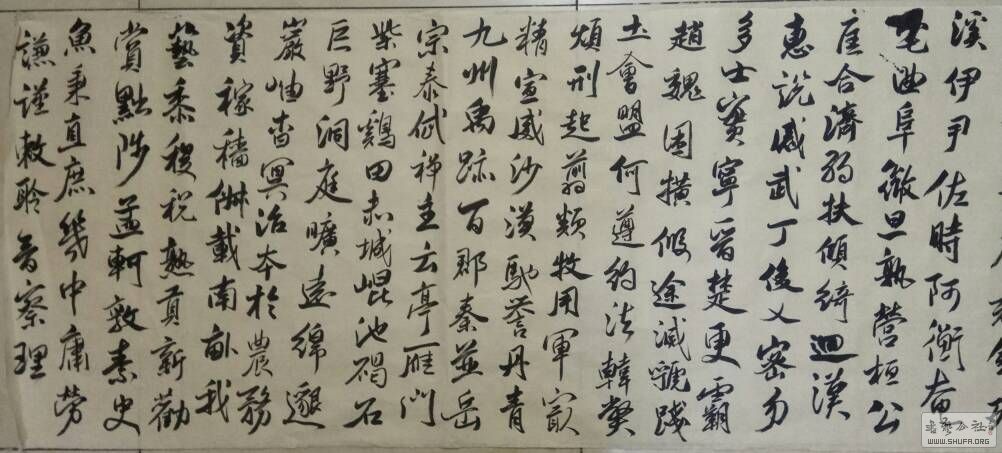 溪伊尹佐時阿衡奄
宅曲阜微旦孰營桓公
匡合濟弱扶傾綺迴漢
惠說感武丁俊乂密勿
多士寔寧晉楚更霸
趙魏困橫假途滅虢踐
土會盟何遵約法韓弊
煩刑起翦頗牧用軍最
精宣威沙漠馳譽丹青
九州禹跡百郡秦並岳
宗泰岱禪主云亭雁門
紫塞鷄田赤城崐池碣石
巨野洞庭曠遠綿邈
巖岫杳冥治本於農務
資稼穡俶載南畝我
藝黍稷稅熟貢新勸
賞黜陟孟軻敦素史
魚秉直庶幾中庸勞
謙謹敕聆音察理
WWW.SHUFA.ORG